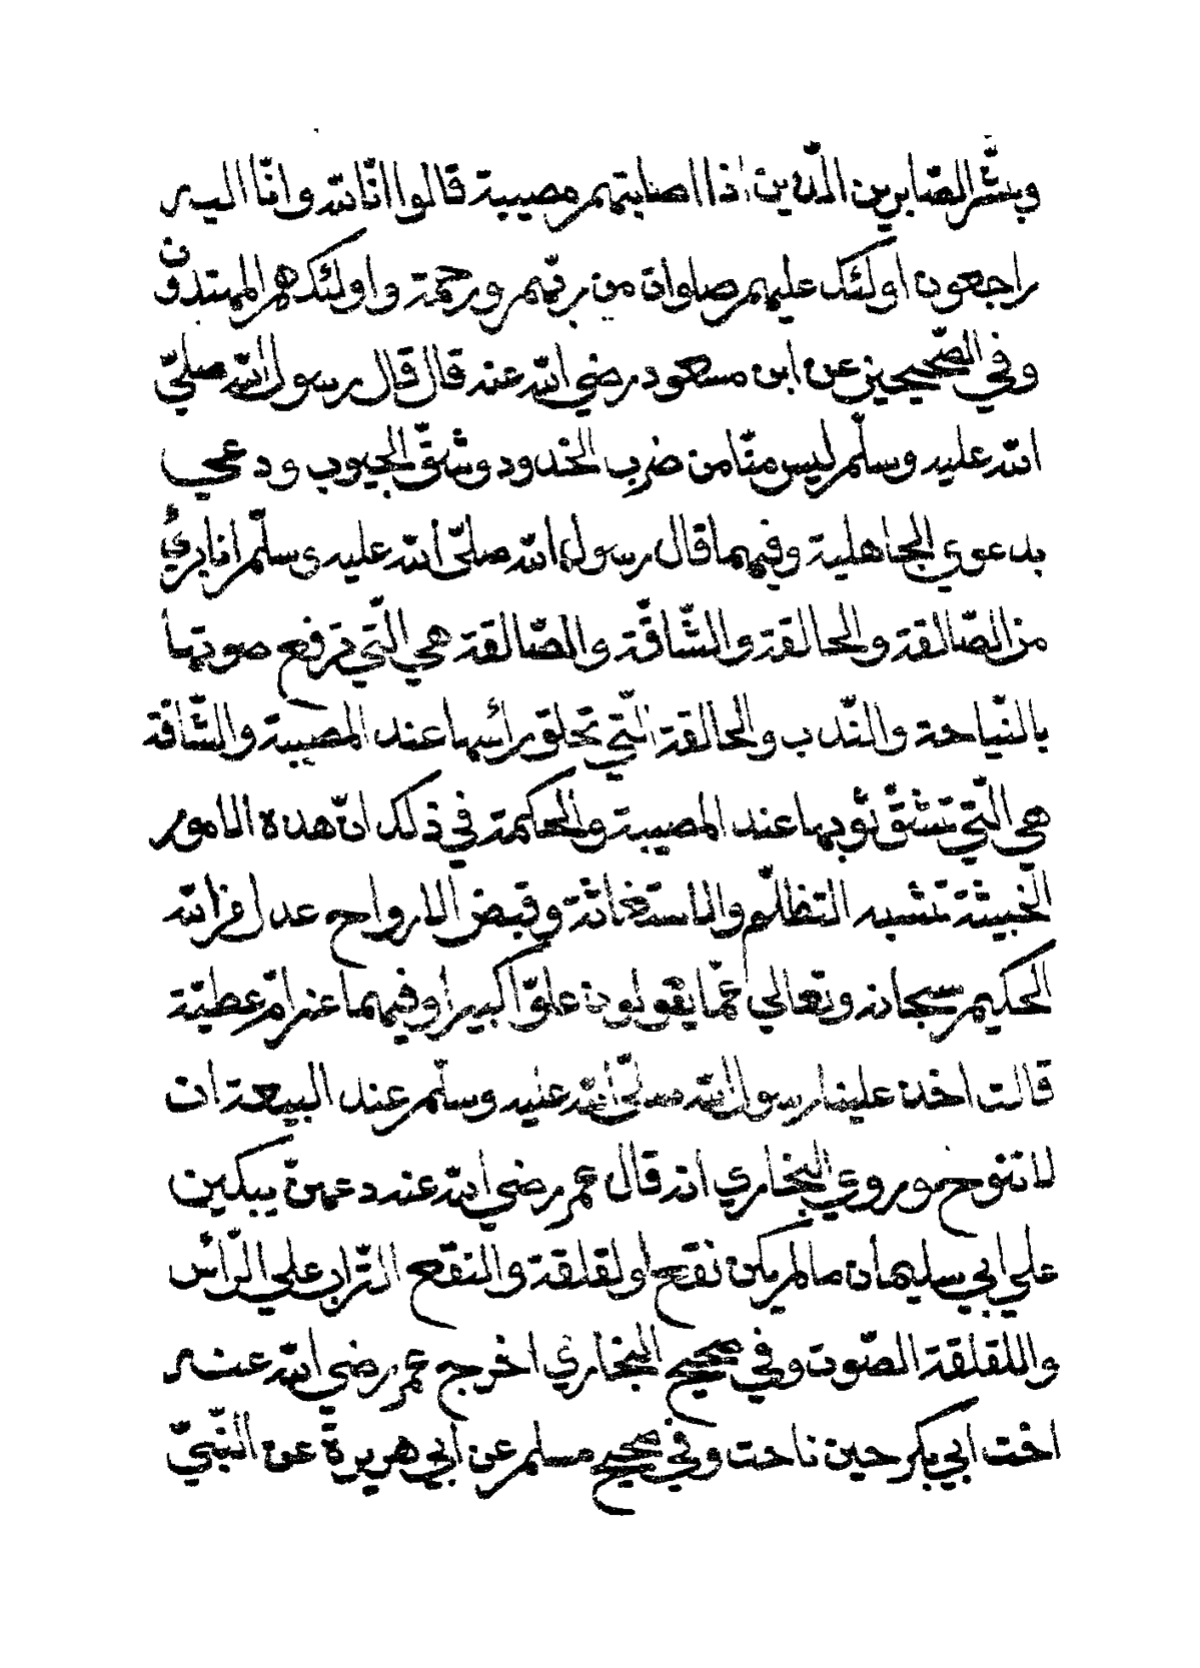 وبشّر الصّابرين الّذين اذا اصابتهم مصيبة قالوا انّا لله وانّا اليه
راجعون اولئك عليهم صلوات من ربّهم ورحمة واولئك هم المهتدون
وفي الصّحيحين عن ابن مسعود رضي الله عنه قال قال رسول الله صلّي
الله عليه وسلّم ليس منّا من ضرب الخدود وشقّ الجيوب ودعي
بدعوي الجاهلية وفيهما قال رسول الله صلّي الله عليه وسلّم انا برئ
من الصّالقة والحالقة والشّاقّة والصّالقة هي الّتي ترفع صوتها
بالنّياحة والنّدب والحالقة الّتي تحلق رأسها عند المصيبة والشّاقة
هي الّتي تشقّ ثوبها عند المصيبة والحكمة في ذلك انّ هذه الامور
الخبيثة تشبه التظلّم والاستغاثة وقبض الارواح عدل من الله
الحكيم سبحانه وتعالي عمّا يقولون علوّا كبيرا وفيهما عن امّ عطيّة
قالت اخذ علينا رسول الله صلّي الله عليه وسلّم عند البيعة ان
لا ننوح وروي البخاري انه قال عمر رضي الله عنه دعهنّ يبكين
علي ابي سليمان ما لم يكن نقع او لقلقة والنقع التّراب علي الرّأس
واللقلقة الصّوت وفي صحيح البخاري اخرج عمر رضي الله عنه
اخت ابي بكر حين ناحت وفي صحيح مسلم عن ابي هريرة عن النّبيّ